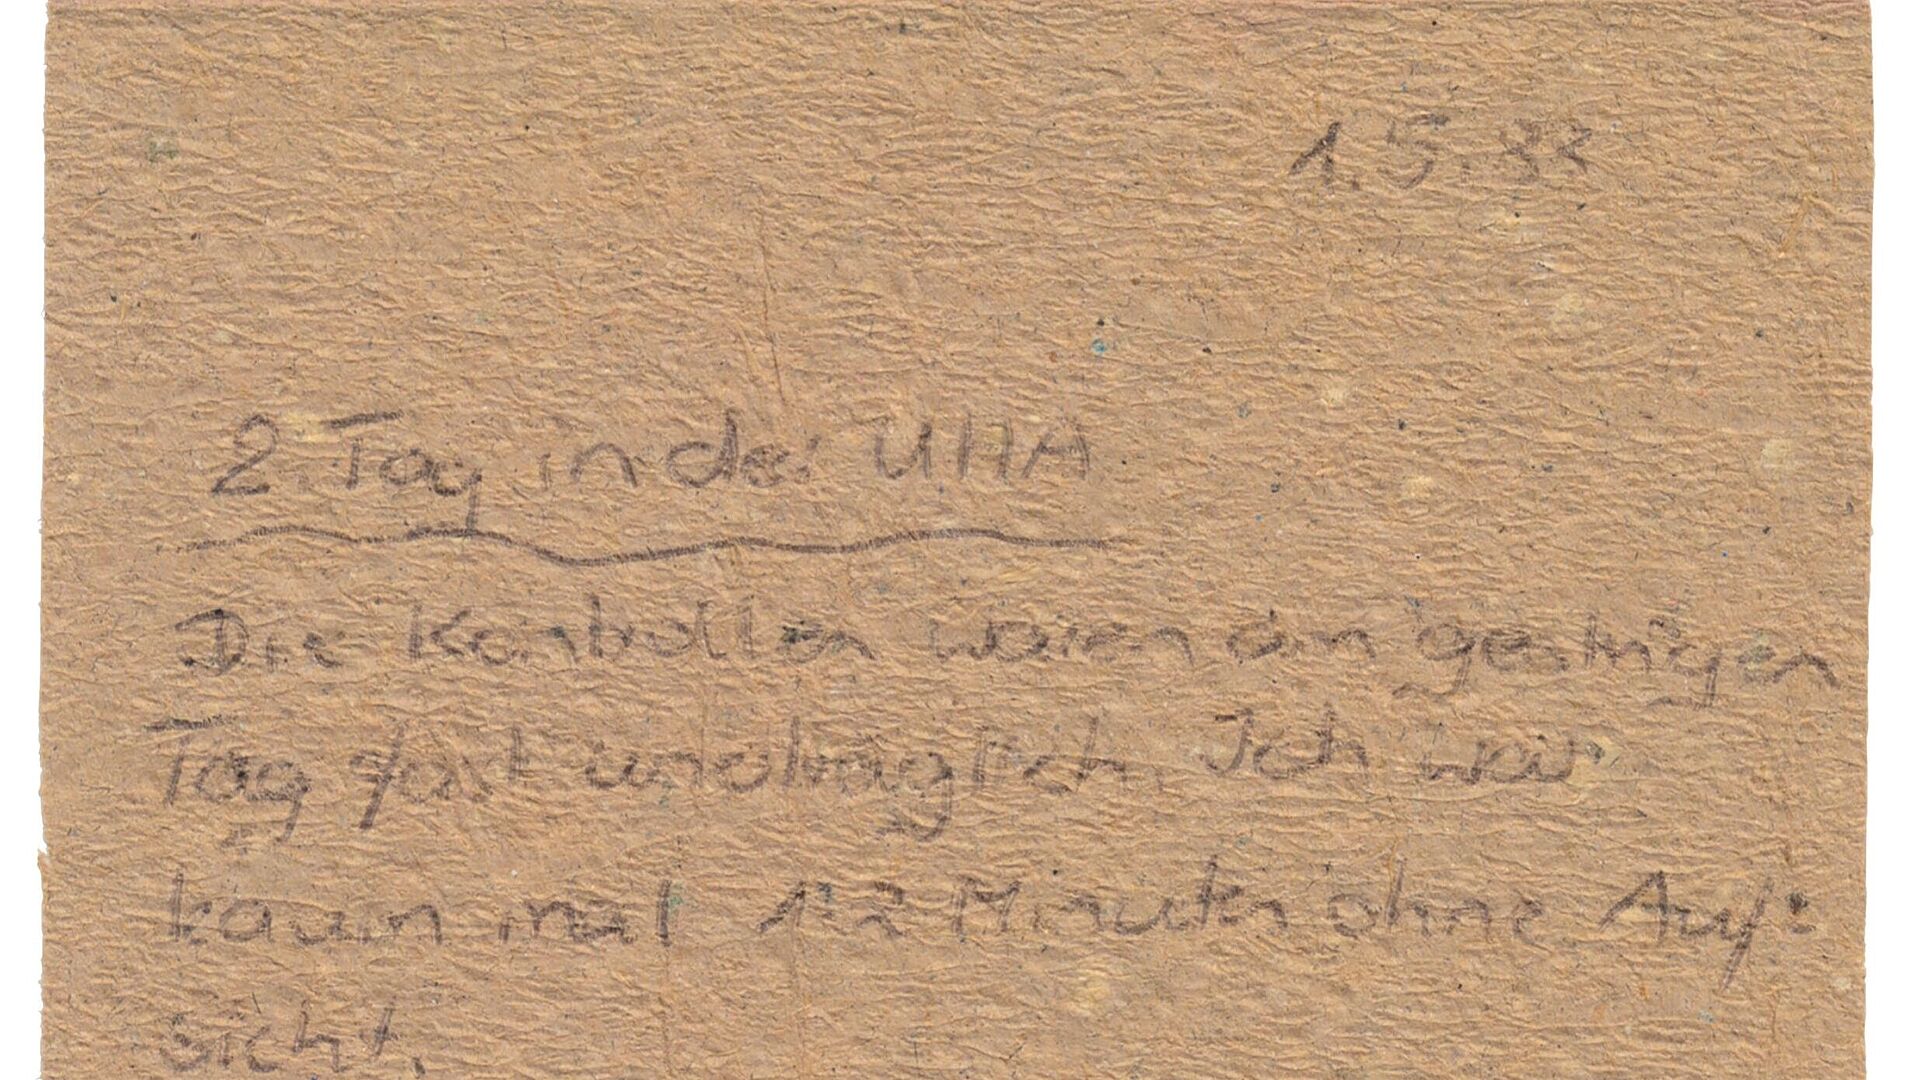 1.5.83
2. Tag in der UHA
Die Kontrollen waren am gestrigen
Tag fast unerträglich. Ich war
kaum mal 1-2 Minuten ohne Auf-
sicht.